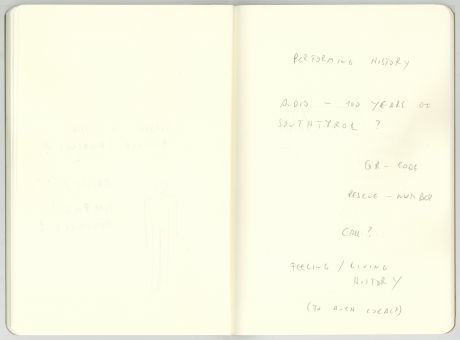 PERFORMING HISTORY
AUDIO - 100 YEARS OF
SOUTHTYROL ?
QR - CODE
RESCUE - NUMBER
CALL ?
FEELING / LIVING
HISTORY
(TO MUCH LOCAL?)